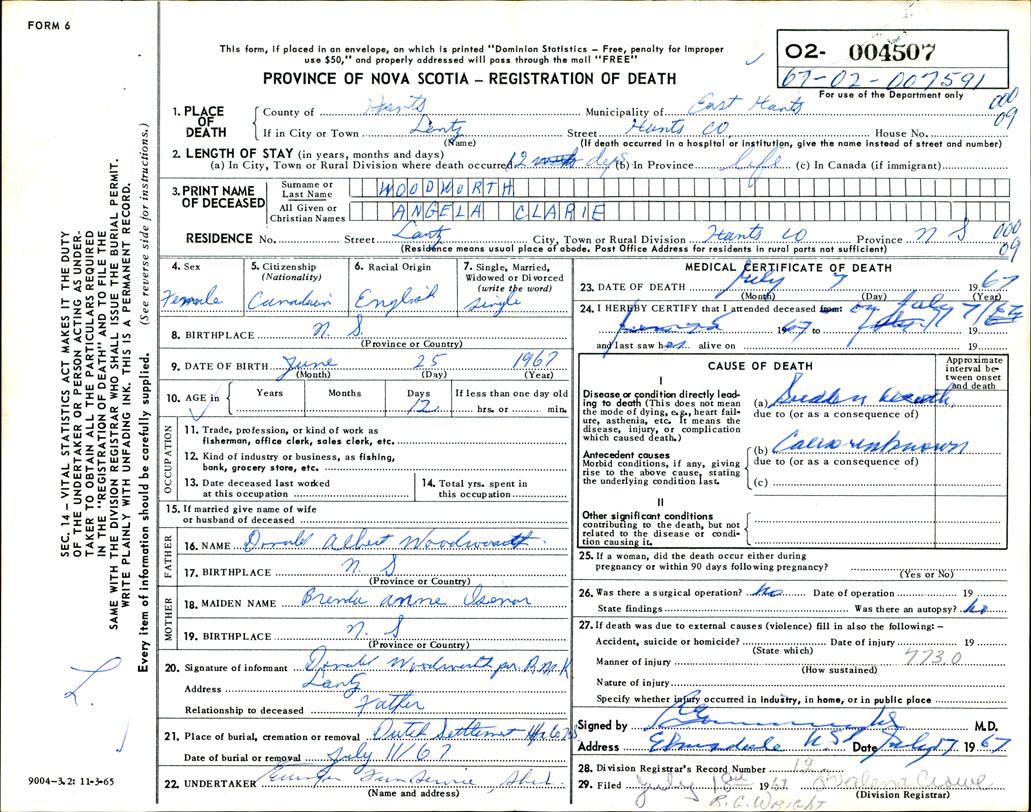 FORM 6
This form, if placed in an envelope, on which is printed "Dominion Statistics – Free, penalty for improper
use $50," and properly addressed will pass through the mail "FREE"
PROVINCE OF NOVA SCOTIA – REGISTRATION OF DEATH
02- 004507
67-02-007591
For use of the Department only
000
09
1. PLACE OF DEATH
County of Hants Municipality of East Hants
If in City or Town Lantz Street Hants Co House No.
(Name) (If death occurred in a hospital or institution, give the name instead of street and number)
2. LENGTH OF STAY (in years, months and days)
(a) In City, Town or Rural Division where death occurred 12 days (b) In Province Life (c) In Canada (if immigrant)
3. PRINT NAME OF DECEASED
Surname or Last Name WOODWORTH
All Given or Christian Names ANGELA CLARIE
RESIDENCE No. Street Lantz City, Town or Rural Division Hants Co Province N S
000
09
(Residence means usual place of abode. Post Office Address for residents in rural parts not sufficient)
4. Sex
Female
5. Citizenship (Nationality)
Canadian
6. Racial Origin
English
7. Single, Married, Widowed or Divorced (write the word)
single
8. BIRTHPLACE N. S.
(Province or Country)
9. DATE OF BIRTH June 25 1967
(Month) (Day) (Year)
10. AGE in
Years Months Days If less than one day old
12 hrs. or min.
OCCUPATION
11. Trade, profession, or kind of work as
fisherman, office clerk, sales clerk, etc.
12. Kind of industry or business, as fishing,
bank, grocery store, etc.
13. Date deceased last worked
at this occupation
14. Total yrs. spent in
this occupation
15. If married give name of wife
or husband of deceased
FATHER
16. NAME Donald Albert Woodworth
17. BIRTHPLACE N. S
(Province or Country)
MOTHER
18. MAIDEN NAME Brenda Anne Isenor
19. BIRTHPLACE N. S
(Province or Country)
20. Signature of informant Donald Woodworth per B.M.K
Address Lantz
Relationship to deceased Father
21. Place of burial, cremation or removal Dutch Settlement
Date of burial or removal July 11/67
22. UNDERTAKER
(Name and address)
MEDICAL CERTIFICATE OF DEATH
23. DATE OF DEATH July 7 1967
(Month) (Day) (Year)
24. I HEREBY CERTIFY that I attended deceased from: on July 7/67
67 to 19
and last saw h alive on 19
CAUSE OF DEATH
Approximate interval between onset and death
I
Disease or condition directly leading to death (This does not mean the mode of dying, e.g., heart failure, asthenia, etc. It means the disease, injury, or complication which caused death.)
(a) Sudden death
due to (or as a consequence of)
Antecedent causes
Morbid conditions, if any, giving rise to the above cause, stating the underlying condition last.
(b) Cause unknown
due to (or as a consequence of)
(c)
II
Other significant conditions
contributing to the death, but not related to the disease or condition causing it.
25. If a woman, did the death occur either during
pregnancy or within 90 days following pregnancy?
(Yes or No)
26. Was there a surgical operation? No Date of operation 19
State findings Was there an autopsy? No
27. If death was due to external causes (violence) fill in also the following: –
Accident, suicide or homicide? Date of injury 19
(State which)
773.0
Manner of injury
(How sustained)
Nature of injury
Specify whether injury occurred in industry, in home, or in public place
Signed by M.D.
Address Elmsdale N.S. Date July 7 1967
28. Division Registrar's Record Number 19
29. Filed July 1967 Crowe
(Division Registrar)
R. C. WRIGHT
SEC. 14 – VITAL STATISTICS ACT MAKES IT THE DUTY
OF THE UNDERTAKER OR PERSON ACTING AS UNDER-
TAKER TO OBTAIN ALL THE PARTICULARS REQUIRED
IN THE "REGISTRATION OF DEATH" AND TO FILE THE
SAME WITH THE DIVISION REGISTRAR WHO SHALL ISSUE THE BURIAL PERMIT.
WRITE PLAINLY WITH UNFADING INK. THIS IS A PERMANENT RECORD.
Every item of information should be carefully supplied. (See reverse side for instructions.)
9004-3.2: 11-3-65